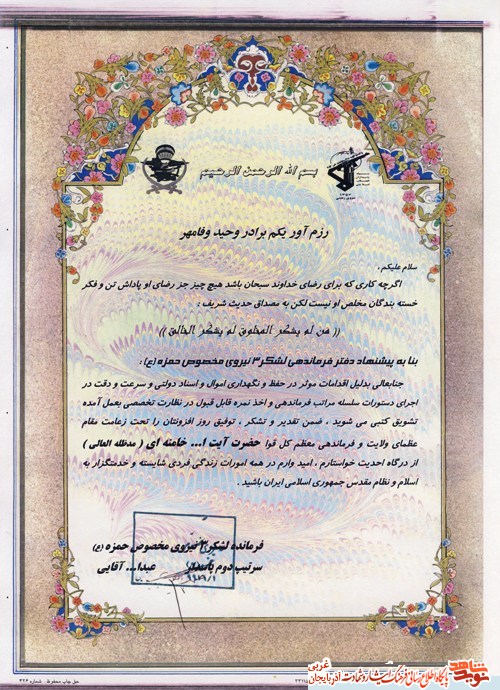 بسم الله الرحمن الرحیم
رزم آور یکم برادر وحید وفامهر
سلام علیکم ،
اگرچه کاری که برای رضای خداوند سبحان باشد هیچ چیز جز رضای او پاداش تن و فکر
خسته بندگان مخلص او نیست لکن به مصداق حدیث شریف :
(( من لم یشکر المخلوق لم یشکر الخالق ))
بنا به پیشنهاد دفتر فرماندهی لشکر۳ نیروی مخصوص حمزه (ع) :
جنابعالی بدلیل اقدامات موثر در حفظ و نگهداری اموال و اسناد دولتی و سرعت و دقت در
اجرای دستورات سلسله مراتب فرماندهی و اخذ نمره قابل قبول در نظارت تخصصی بعمل آمده
تشویق کتبی می شوید ، ضمن تقدیر و تشکر ، توفیق روز افزونتان را تحت زعامت مقام
عظمای ولایت و فرماندهی معظم کل قوا حضرت آیت ا... خامنه ای ( مدظله العالی )
از درگاه احدیت خواستارم ، امید وارم در همه امورات زندگی فردی شایسته و خدمتگزار به
اسلام و نظام مقدس جمهوری اسلامی ایران باشید .
فرمانده لشکر۳ نیروی مخصوص حمزه (ع)
سرتیپ دوم پاسدار عبدا... آقایی
حق چاپ محفوظ . شماره ۴۲۶
نوید شاهد
پایگاه اطلاع رسانی فرهنگ ایثار و شهادت آذربایجان غربی